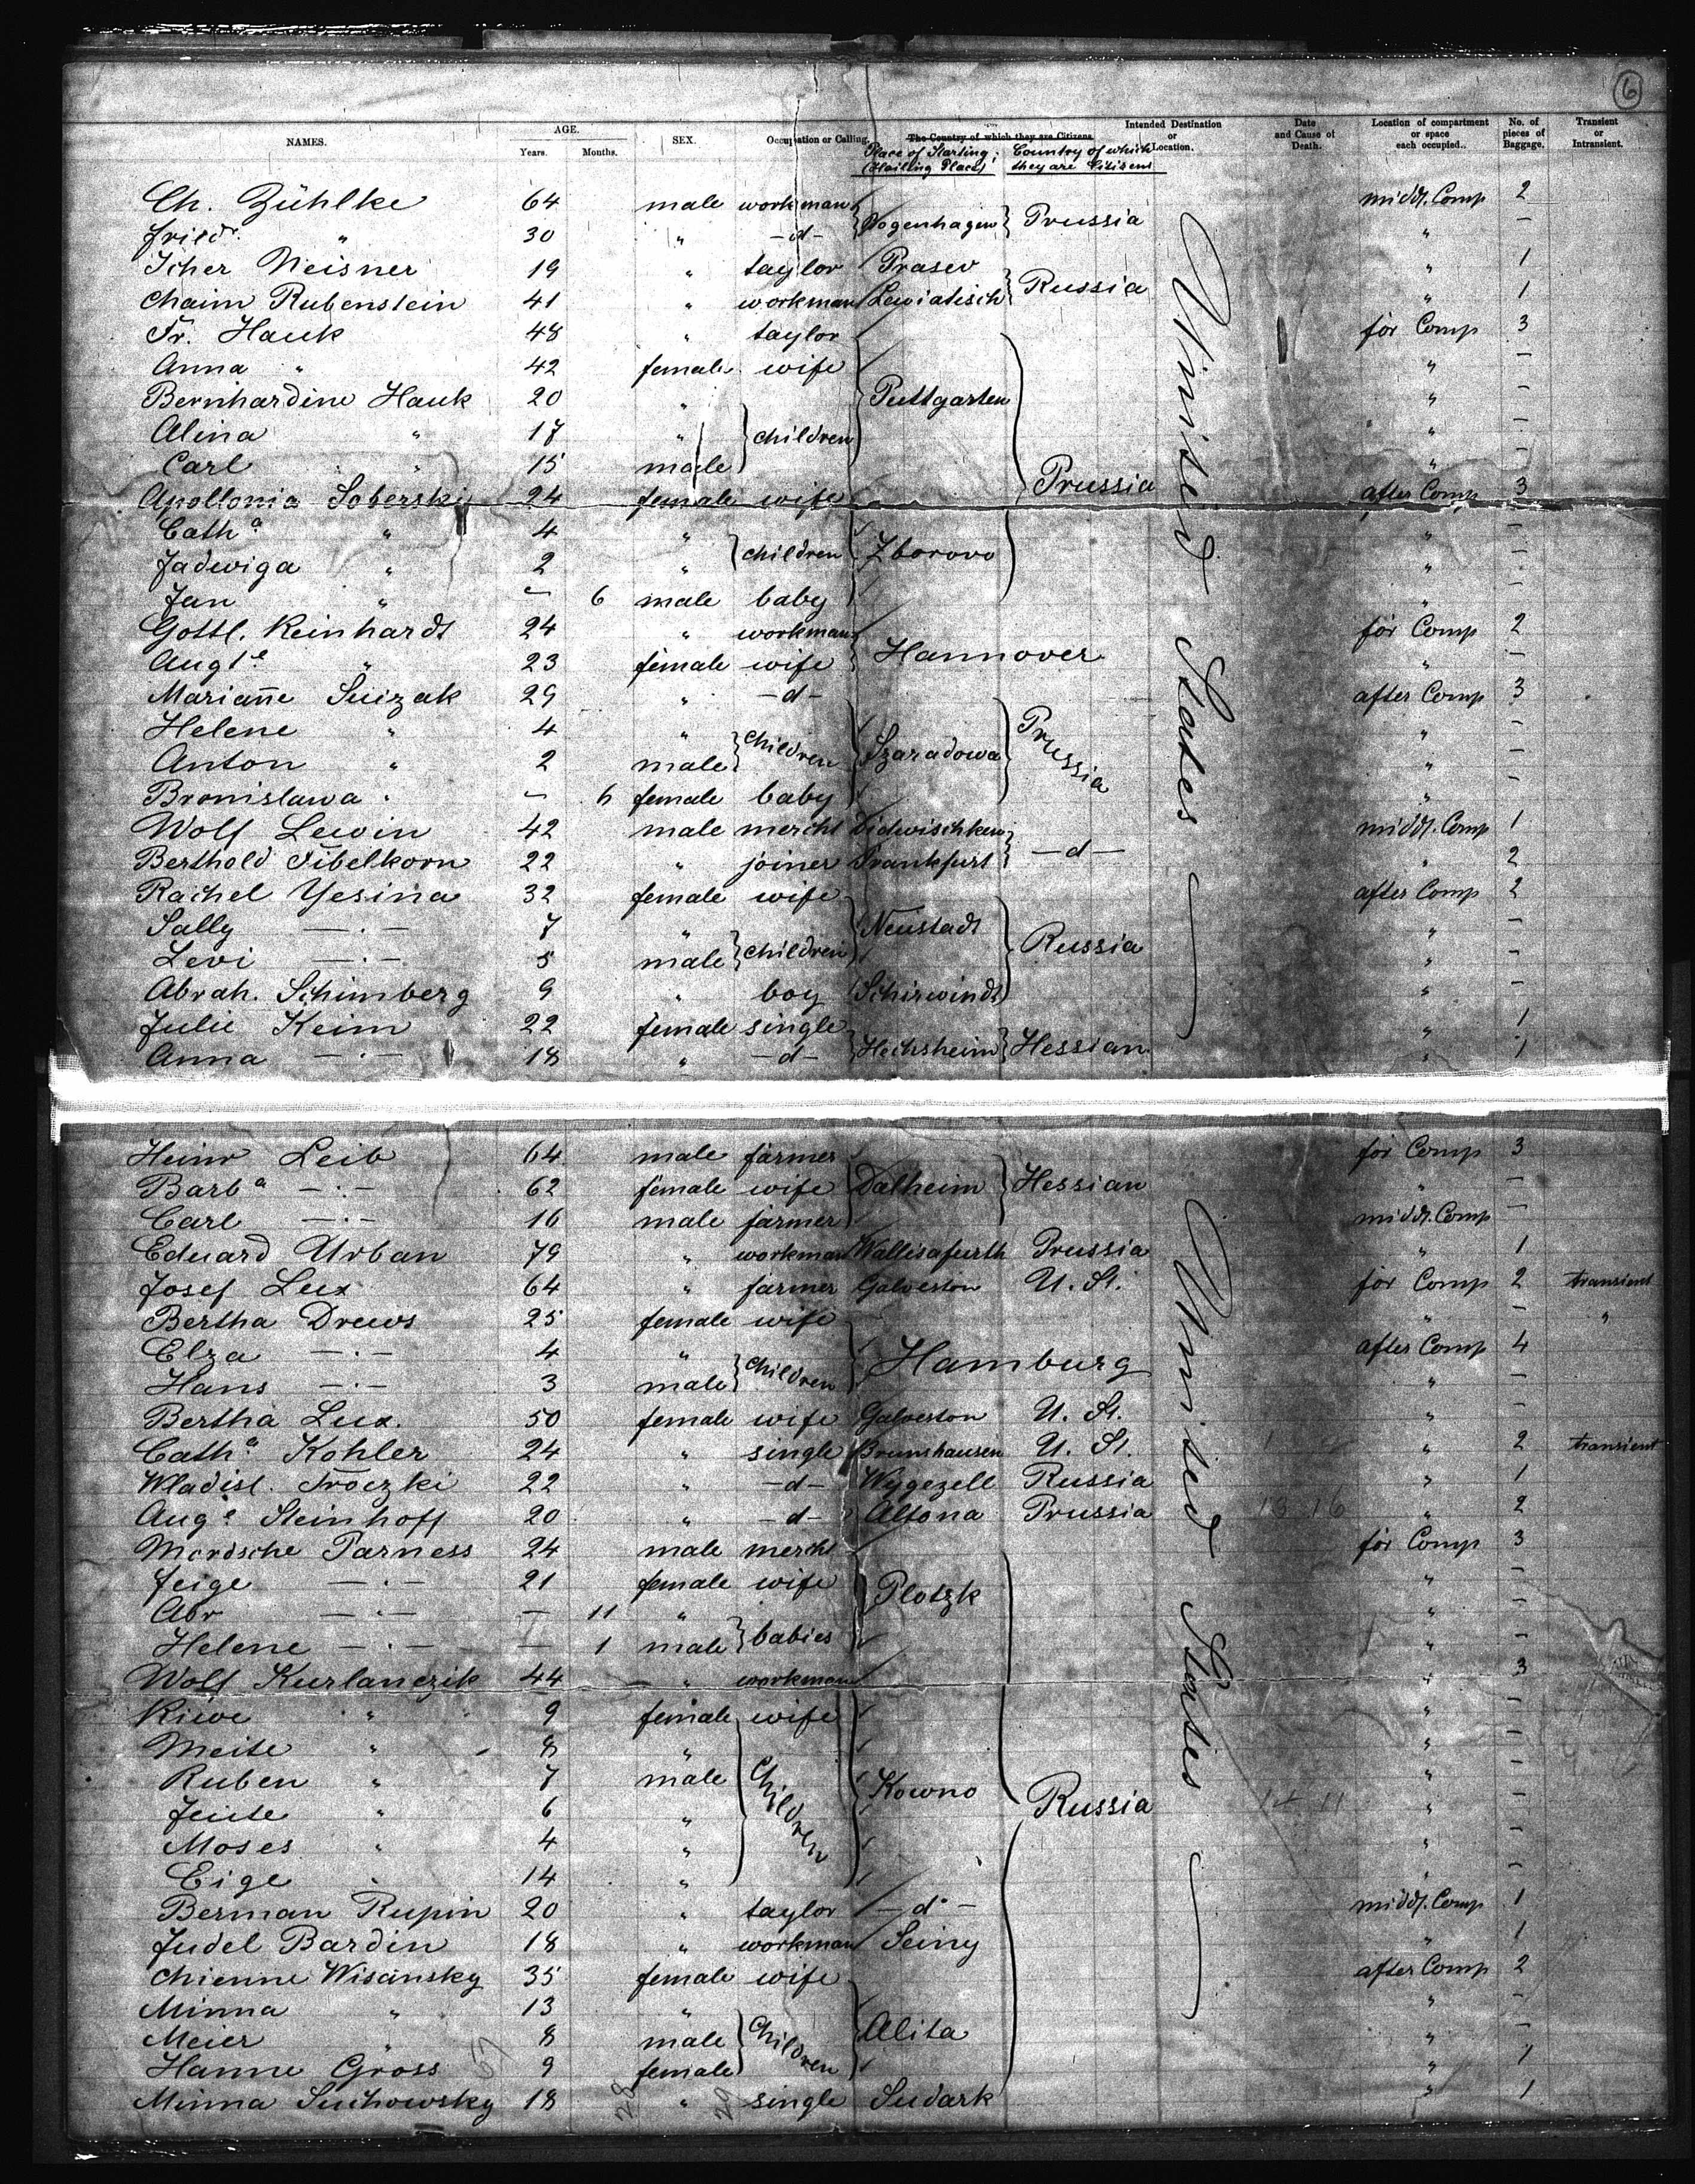 6
NAMES. AGE. Years. Months. SEX. Occupation or Calling. The Country of which they are Citizens Intended Destination or Location. Date and Cause of Death. Location of compartment or space each occupied.. No. of pieces of Baggage. Transient or Intransient.
Place of Starting; (Hailing Place) Country of which they are Citizens
Ch. Zühlke 64 male workman middl. Comp 2
Friedr. " 30 " -d- Hogenhagen Prussia " -
Icher Neisner 19 " taylor Prasev " 1
Chaim Rubenstein 41 " workman Lewiatisch Russia " 1
Fr. Hauk 48 " taylor for Comp 3
Anna " 42 female wife " -
Bernhardine Hauk 20 " Puttgarten " -
Alina " 17 " children " -
Carl " 15 male " -
Apollonia Soberski 24 female wife Prussia after Comp 3
Cath.a " 4 " " -
Jadwiga " 2 " children Zborowo " -
Jan " - 6 male baby " -
Gottl. Reinhardt 24 " workman for Comp 2
Augte " 23 female wife Hannover " -
Marianne Suizak 29 " -d- after Comp 3
Helene " 4 " " -
Anton " 2 male children Szaradowa Prussia " -
Bronislawa " - 6 female baby " -
Wolf Lewin 42 male mercht Didwischken middl. Comp 1
Berthold Fibelkorn 22 " joiner Frankfurt -d- " 2
Rachel Yesina 32 female wife after Comp 2
Sally -·- 7 " Neustadt " -
Levi -·- 5 male children Russia " -
Abrah. Schimberg 9 " boy Schirwindt " -
Julie Keim 22 female single " 1
Anna -·- 18 " -d- Hechsheim Hessian " 1
United States
Heinr Leib 64 male farmer for Comp 3
Barba -·- 62 female wife Dalheim Hessian " -
Carl -·- 16 male farmer middl. Comp -
Eduard Urban 79 " workman Wallisafurth Prussia " 1
Josef Lux 64 " farmer Galveston U. St. for Comp 2 transient
Bertha Drews 25 female wife " - "
Elza -·- 4 " after Comp 4
Hans -·- 3 male children Hamburg " -
Bertha Lux. 50 female wife Galveston U. St. " -
Cath.a Kohler 24 " single Brunshausen U. St. " 2 transient
Wladisl. Troczki 22 " -d- Wygezell Russia " 1
Aug.e Steinhoff 20 " -d- Altona Prussia 13 16 " 2
Mordsche Parness 24 male mercht for Comp 3
Feige -·- 21 female wife Plotzk " -
Abr -·- - 11 " " -
Helene -·- - 1 male babies " -
Wolf Kurlanczik 44 " workman " 3
Riwe " 9 female wife " -
Meite " 8 " " -
Ruben " 7 male children Kowno " -
Jeute " 6 " Russia 14 11 " -
Moses " 4 " " -
Eige " 14 " " -
Berman Rupin 20 " taylor -d- middl. Comp 1
Judel Bardin 18 " workman Seiny " 1
Chienne Wisansky 35 female wife after Comp 2
Minna " 13 " " -
Meier " 8 male children Alita " -
Hanne Gross 9 female " 1
Minna Suchowsky 18 " single Sudark " 1
United States